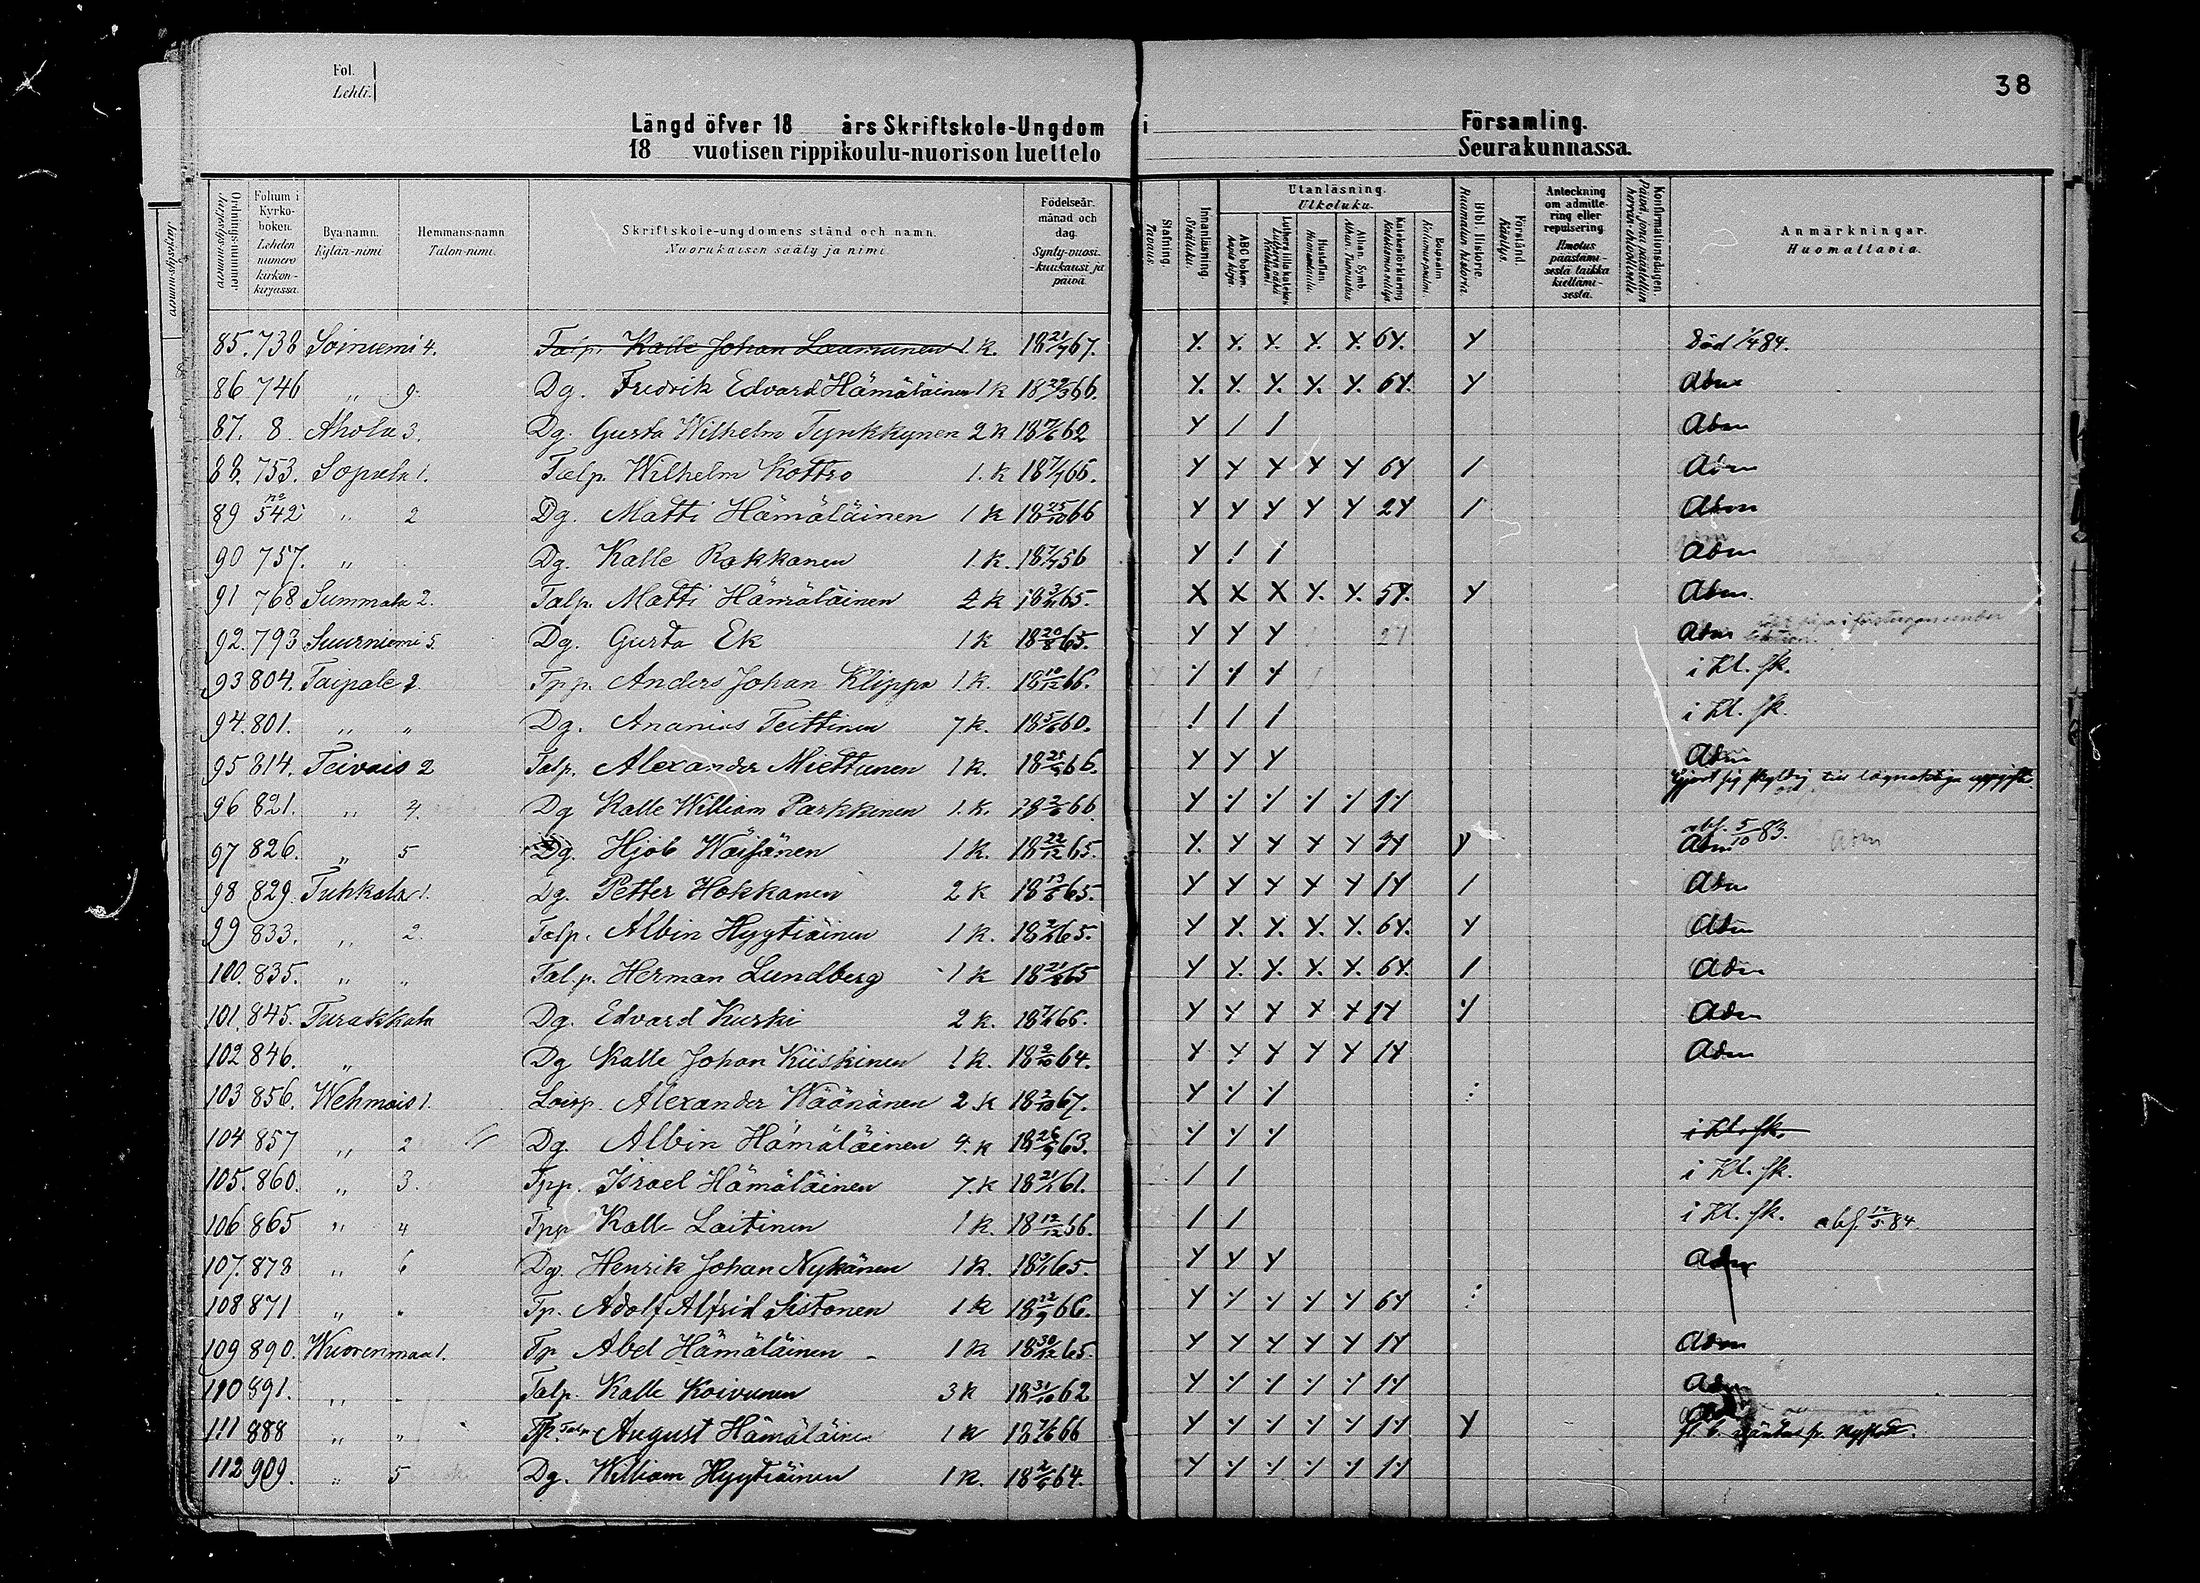 38
Fol.
Lehti.
Längd öfver 18 års Skriftskole-Ungdom i Församling.
18 vuotisen rippikoulu-nuorison luettelo Seurakunnassa.
Ordningsnummer. Järjestysnumero
Folium i Kyrkoboken. Lehden numero kirkonkirjassa.
Bya-namn. Kylän-nimi
Hemmans-namn Talon-nimi.
Skriftskole-ungdomens stånd och namn. Nuorukaisen sääty ja nimi.
Födelseår, månad och dag. Synty-vuosi -kuukausi ja päivä
Stafning. Tavaus.
Innanläsning. Sisäluku.
Utanläsning. Ulkoluku.
ABC boken. Aapis kirja.
Luthers lilla kateket
Hustaflan. Huoneentaulu.
Athan. Symb. Athan. Tunnustus.
Katekesförklaring
Botpsalm
Bibl. Historie. Raamatun historia.
Förstånd. Käsitys.
Anteckning om admittering eller repulsering. Ilmotus päästämisestä taikka kieltämisestä.
Konfirmationsdagen. Päivä, jona päästettiin herran ehtoolliselle.
Anmärkningar. Huomattavia.
85. 738 Soiniemi 4. Talp. Kalle Johan Laamanen 1. k. 18 21/7 67. Y. Y. Y. Y. Y. 6Y. Y Död 1/4 84.
86 746 " 9. Dg. Fredrik Edvard Hämäläinen 1 k 18 22/3 66. Y. Y. Y. Y. Y. 6Y. Y Adm
87. 8 Ahola 3. Dg. Gusta Wilhelm Tynkkynen 2 k 18 62 Y / / Adm
88. 753. Sopala 1. Talp. Wilhelm Kottro 1. k 18 65. Y Y Y Y Y 6Y / Adm
89 no 542 " 2 Dg. Matti Hämäläinen 1 k 18 25/10 66 Y Y Y Y Y 2Y / Adm
90 757. " Dg. Kalle Rokkanen 1 k. 18 56 Y / / Adm
91 768 Summala 2. Talp. Matti Hämäläinen 2 k 18 65. X X X Y. Y. 5Y. Y Adm.
92. 793 Suurniemi 5. Dg. Gusta Ek 1 k 18 20/8 65. Y Y Y Adm
93 804. Taipale 2. Tpp. Anders Johan Klippa 1 k. 18 10/12 66. Y Y Y i Kl. sk.
94. 801. " " Dg. Ananias Teittinen 7 k. 18 60. / / / i Kl. sk.
95 814. Teivais 2 Talp. Alexander Miettunen 1 k. 18 66. Y Y Y Adm
Gjort sig skyldig till lögnaktiga uppgifter.
96 821. " 4. Dg Kalle William Parkkinen 1. k. 18 66 Y Y Y Y Y 1Y
97 826. " 5 Dg. Hjob Wäisänen 1 k. 18 22/12 65. Y. Y Y Y Y 3Y Y abs. 5/10 83. Adm Adm
98 829. Tuhkala 1. Dg. Petter Hokkanen 2 k 18 65. Y Y Y Y Y 1Y / Adm
99 833. " 2. Talp. Albin Hyytiäinen 1 k. 18 65. Y Y. Y. Y. Y. 6Y. Y Adm
100. 835. " " Talp. Herman Lundberg 1 k 18 65 Y Y. Y. Y. Y. 6Y. / Adm
101. 845. Turakkala Dg. Edvard Kurki 2 k. 18 66. Y Y Y Y Y 1Y Y Adm
102 846. " Dg Kalle Johan Kiiskinen 1 k. 18 9/10 64. Y Y Y Y Y 1Y Adm
103 856. Wehmais 1. Loisp. Alexander Wäänänen 2. k 18 67. Y Y Y
104 857 " 2 Dg. Albin Hämäläinen 4. k 18 63. Y Y Y i Kl. sk.
105. 860. " 3. Tpp. Israel Hämäläinen 7. k 18 61. / / i Kl. sk.
106 865 " 4 Tpp Kalle Laitinen 1 k. 18 12/12 56. / / i Kl. sk. abs. 12/5 84.
107. 878 " 6 Dg. Henrik Johan Nykänen 1 k. 18 65. Y Y Y Adm
108 871 " " Tp. Adolf Alfrid Sistonen 1 k 18 66. Y Y Y Y Y 6Y
109 890. Wuorenmaa 1. Tp Abel Hämäläinen 1 k 18 65. Y Y Y Y Y 1Y Adm
110 891. " " Talp. Kalle Koivunen 3 k 18 31/10 62 Y Y Y Y Y 1Y Adm
111 888 " " Tp. Talp August Hämäläinen 1 k 18 66 Y Y Y Y Y 1Y Y
112 909. " 5 Dg. William Hyytiäinen 1 k. 18 64. Y Y Y Y Y 1Y